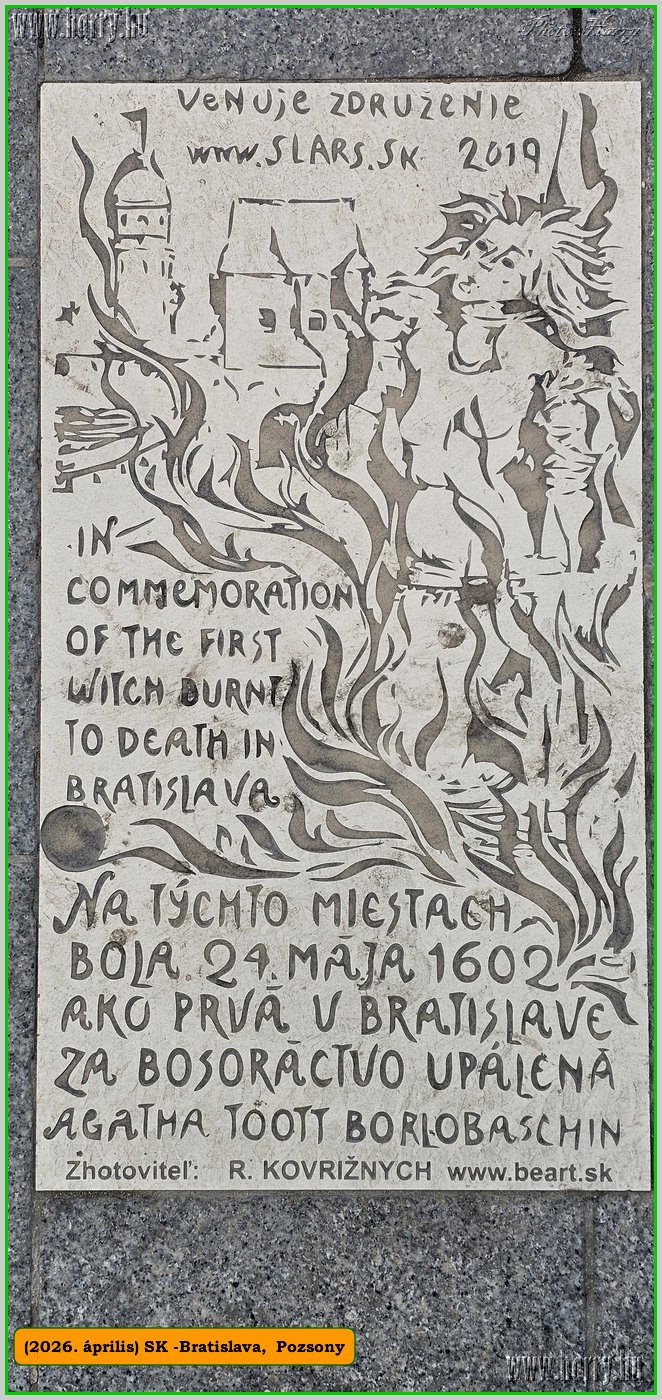 www.horry.hu
Photo: Horry
VENUJE ZDRUŽENIE
www.SLARS.SK 2019
IN
COMMEMORATION
OF THE FIRST
WITCH BURNT
TO DEATH IN
BRATISLAVA
NA TÝCHTO MIESTACH
BOLA 24. MÁJA 1602
AKO PRVÁ V BRATISLAVE
ZA BOSORÁCTVO UPÁLENÁ
AGATHA TOOTT BORLOBASCHIN
Zhotoviteľ: R. KOVRIŽNYCH www.beart.sk
(2026. április) SK -Bratislava, Pozsony
www.horry.hu